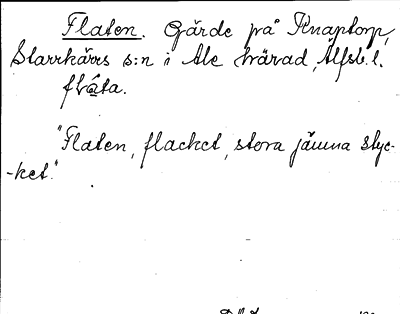 Flaten. Gärde på Knaptorp,
Starrkärrs s:n i Ale härad, Älfsb. l.
flåta.
"Flaten, flacket, stora jämna styc-
-ket."